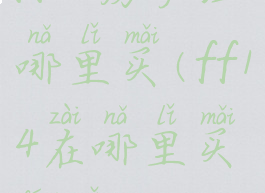 nǎ lǐ mǎi
哪里买(ff1
zài nǎ lǐ mǎi
4在哪里买